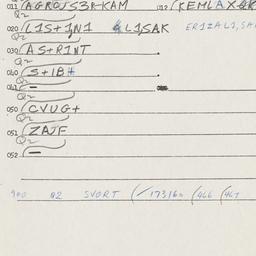 011 AGROJS3R-KAM 012 KEMLAX
Q2
020 L1S+1N1 L1SAK ER1ZAL1,SA
Q2
030 AS+R1NT
Q2
040 S+1B#
Q2
041 —
Q2
050 CVUG+
Q2
051 ZAJF
Q2
052 —
900 02 SVORT (/17316 (466 (467